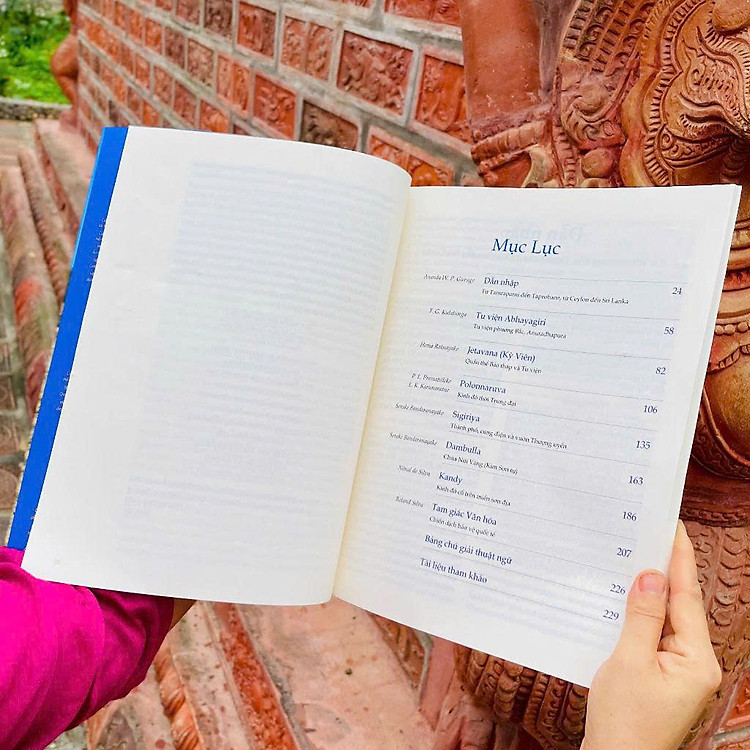 Mục Lục
Ananda W. P. Guruge Dẫn nhập 24
Từ Tamraparni đến Taprobane, từ Ceylon đến Sri Lanka
T. G. Kulatunge Tu viện Abhayagiri 58
Tu viện phương Bắc, Anuradhapura
Hema Ratnayake Jetavana (Kỳ Viên) 82
Quần thể Bảo tháp và Tu viện
P. L. Prematilleke Polonnaruva 106
L. K. Karunaratne Kinh đô thời Trung đại
Senake Bandaranayake Sigiriya 135
Thành phố, cung điện và vườn Thượng uyển
Senake Bandaranayake Dambulla 163
Chùa Núi Vàng (Kim Sơn tự)
Nimal de Silva Kandy 186
Kinh đô cổ trên miền sơn địa
Roland Silva Tam giác Văn hóa 207
Chiến dịch bảo vệ quốc tế
Bảng chú giải thuật ngữ 226
Tài liệu tham khảo 229